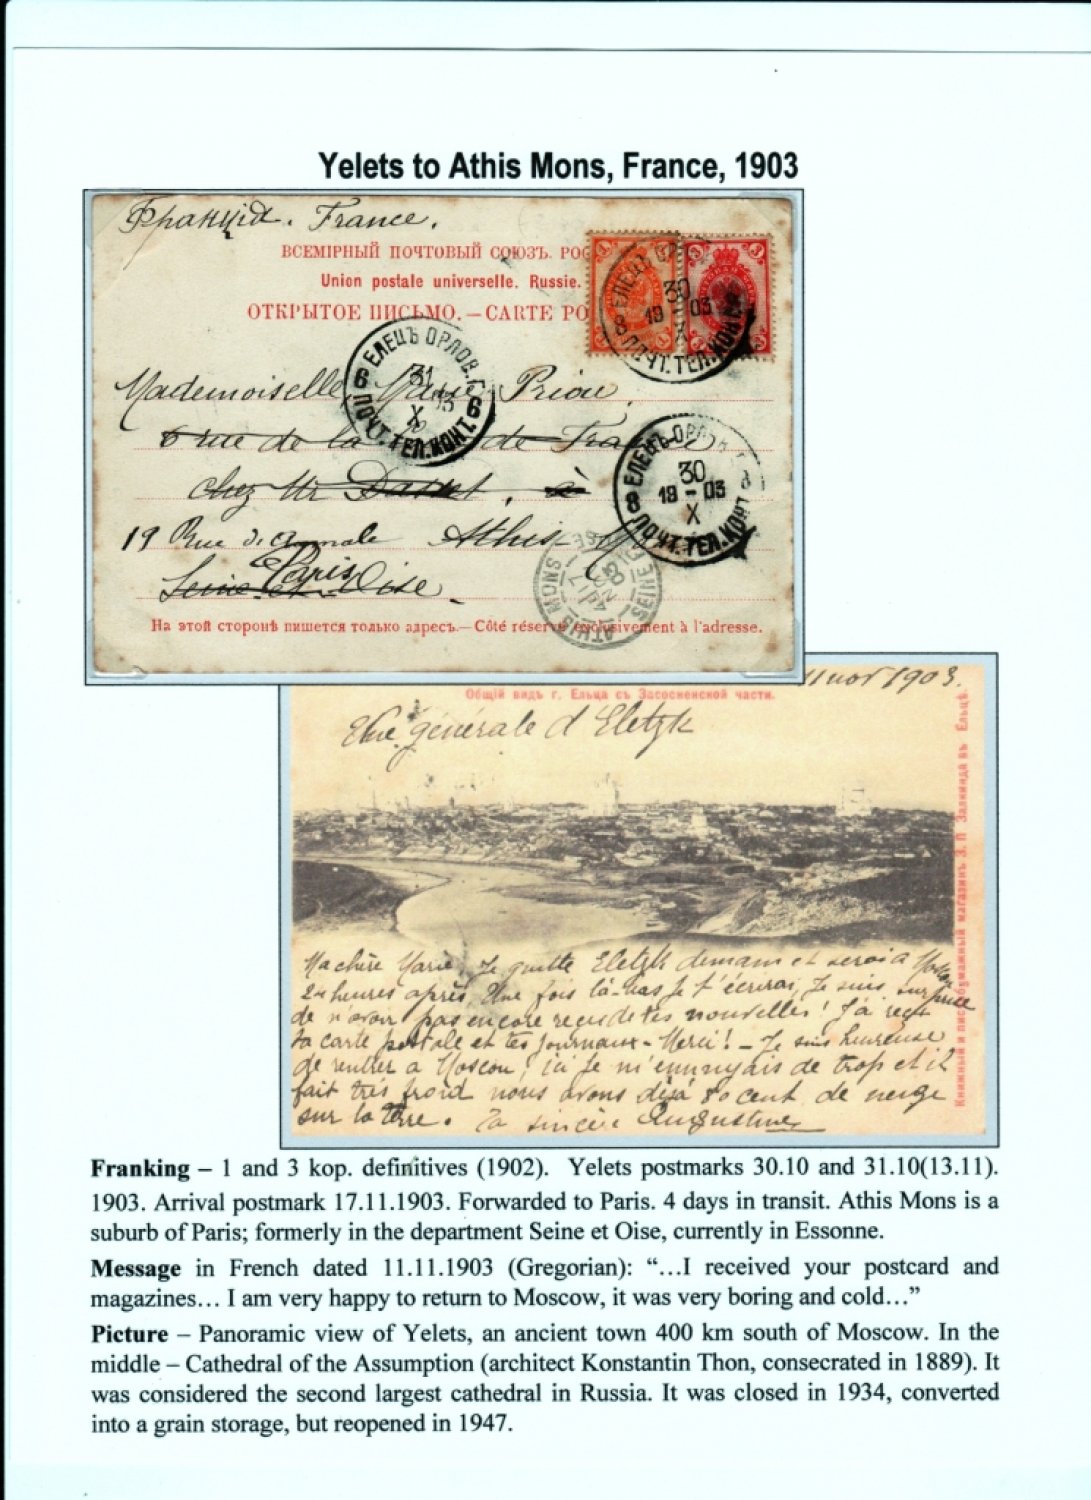 Yelets to Athis Mons, France, 1903
Франція. France.
ВСЕМІРНЫЙ ПОЧТОВЫЙ СОЮЗЪ. РОС
Union postale universelle. Russie.
ОТКРЫТОЕ ПИСЬМО. — CARTE PO
ЕЛЕЦЪ ОРЛОВ. Г.
8 30 X 19 03
ПОЧТ. ТЕЛ. КОНТ.
ЕЛЕЦЪ ОРЛОВ. Г.
6 31 X 03 6
ПОЧТ. ТЕЛ. КОНТ.
Mademoiselle Marie Priou
6 rue de la de France
ЕЛЕЦЪ ОРЛ
8 30 X 19 - 03
ПОЧТ. ТЕЛ. КОНТ
chez Mr , à
19 Rue Athis
Paris
Seine-et-Oise.
ATHIS MONS SEINE
17 NOV 03
На этой сторонѣ пишется только адресъ.—Côté réservé exclusivement à l'adresse.
11 nov 1903.
Общій видъ г. Ельца съ Засосненской части.
Vue générale d'Eletzk
Книжный и писчебумажный магазинъ З. П Залкинда въ Ельцѣ.
Ma chère Marie, Je quitte Eletzk demain et serai a Moscou
24 heures après. Une fois là-bas je t'écrirai, Je suis surprise
de n'avoir pas encore reçu de tes nouvelles! J'ai reçu
ta carte postale et tes journaux - Merci! - Je suis heureuse
de rentrer a Moscou; ici je m'ennuyais de trop et il
fait très froid nous avons déjà 80 cent. de neige
sur la terre. Ta sincère Augustine
Franking – 1 and 3 kop. definitives (1902). Yelets postmarks 30.10 and 31.10(13.11).
1903. Arrival postmark 17.11.1903. Forwarded to Paris. 4 days in transit. Athis Mons is a
suburb of Paris; formerly in the department Seine et Oise, currently in Essonne.
Message in French dated 11.11.1903 (Gregorian): “…I received your postcard and
magazines… I am very happy to return to Moscow, it was very boring and cold…”
Picture – Panoramic view of Yelets, an ancient town 400 km south of Moscow. In the
middle – Cathedral of the Assumption (architect Konstantin Thon, consecrated in 1889). It
was considered the second largest cathedral in Russia. It was closed in 1934, converted
into a grain storage, but reopened in 1947.